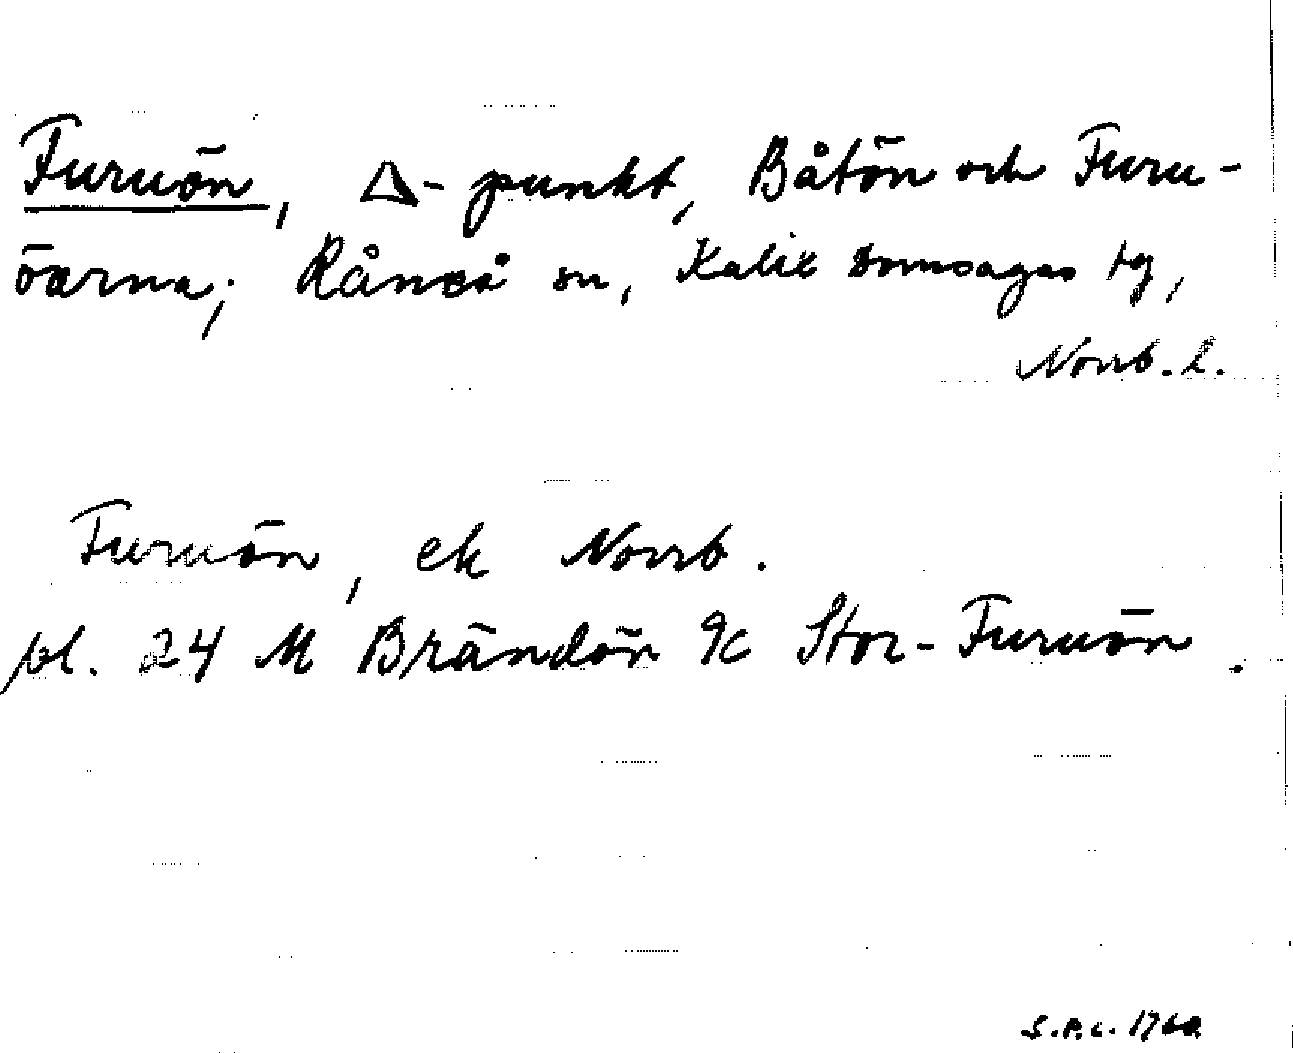 Furuön, △-punkt, Båtön och Furu-
öarna; Råneå sn, Kalix domsagas tg,
Norrb. l.
Furuön, ek Norrb.
bl. 24 M Brändön 9c Stor-Furuön.
S.P.C. 1960